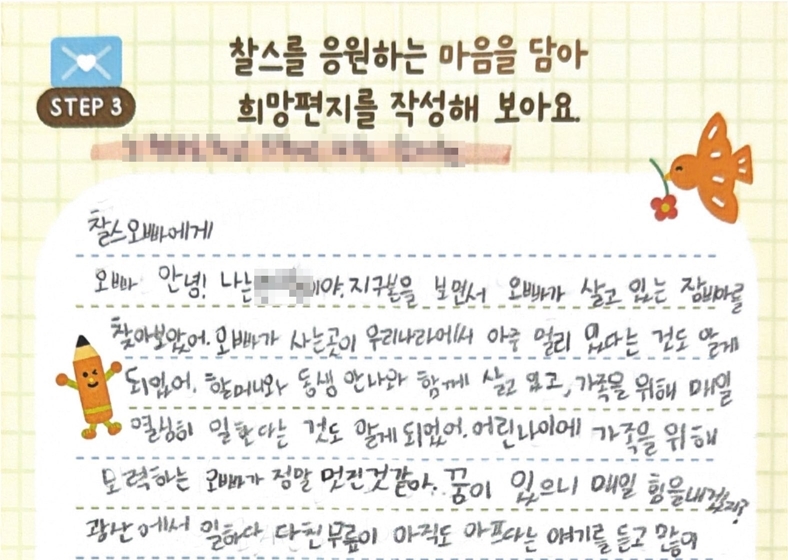 STEP 3
찰스를 응원하는 마음을 담아
희망편지를 작성해 보아요.
찰스오빠에게
오빠 안녕! 나는 야. 지구본을 보면서 오빠가 살고 있는 잠비아를
찾아보았어. 오빠가 사는곳이 우리나라에서 아주 멀리 있다는 것도 알게
되었어. 할머니와 동생 안나와 함께 살고 있고, 가족을 위해 매일
열심히 일한다는 것도 알게 되었어. 어린나이에 가족을 위해
노력하는 오빠가 정말 멋진것같아. 꿈이 있으니 매일 힘을내겠지?
광산에서 일하다 다친무릎이 아직도 아프다는 얘기를 듣고 많이